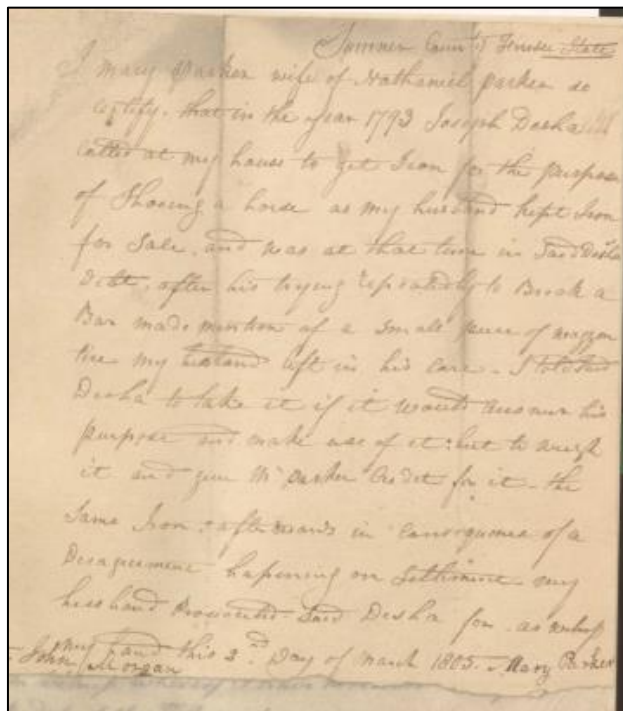 Sumner County Tenesee State
I mary Parker wife of Nathaniel parker do
certify, that in the year 1793 Joseph Desha
called at my house to get Iron for the purpose
of Shoeing a horse as my husband kept Iron
for Sale, and was at that time in Said Desha
Debt, after his trying repeatedly to Break a
Bar made mention of a Small piece of waggon
tire my husband left in his care. I told Said
Desha to take it if it would answer his
purpose and make use of it: but to weigh
it and give Mr parker Credit for it. the
Same Iron afterwards in consequence of a
Disagreement hapening on Settlement my
husband Prosecuted Said Desha for. as witness
my hand this 2nd Day of March 1805. Mary Parker
John Morgan